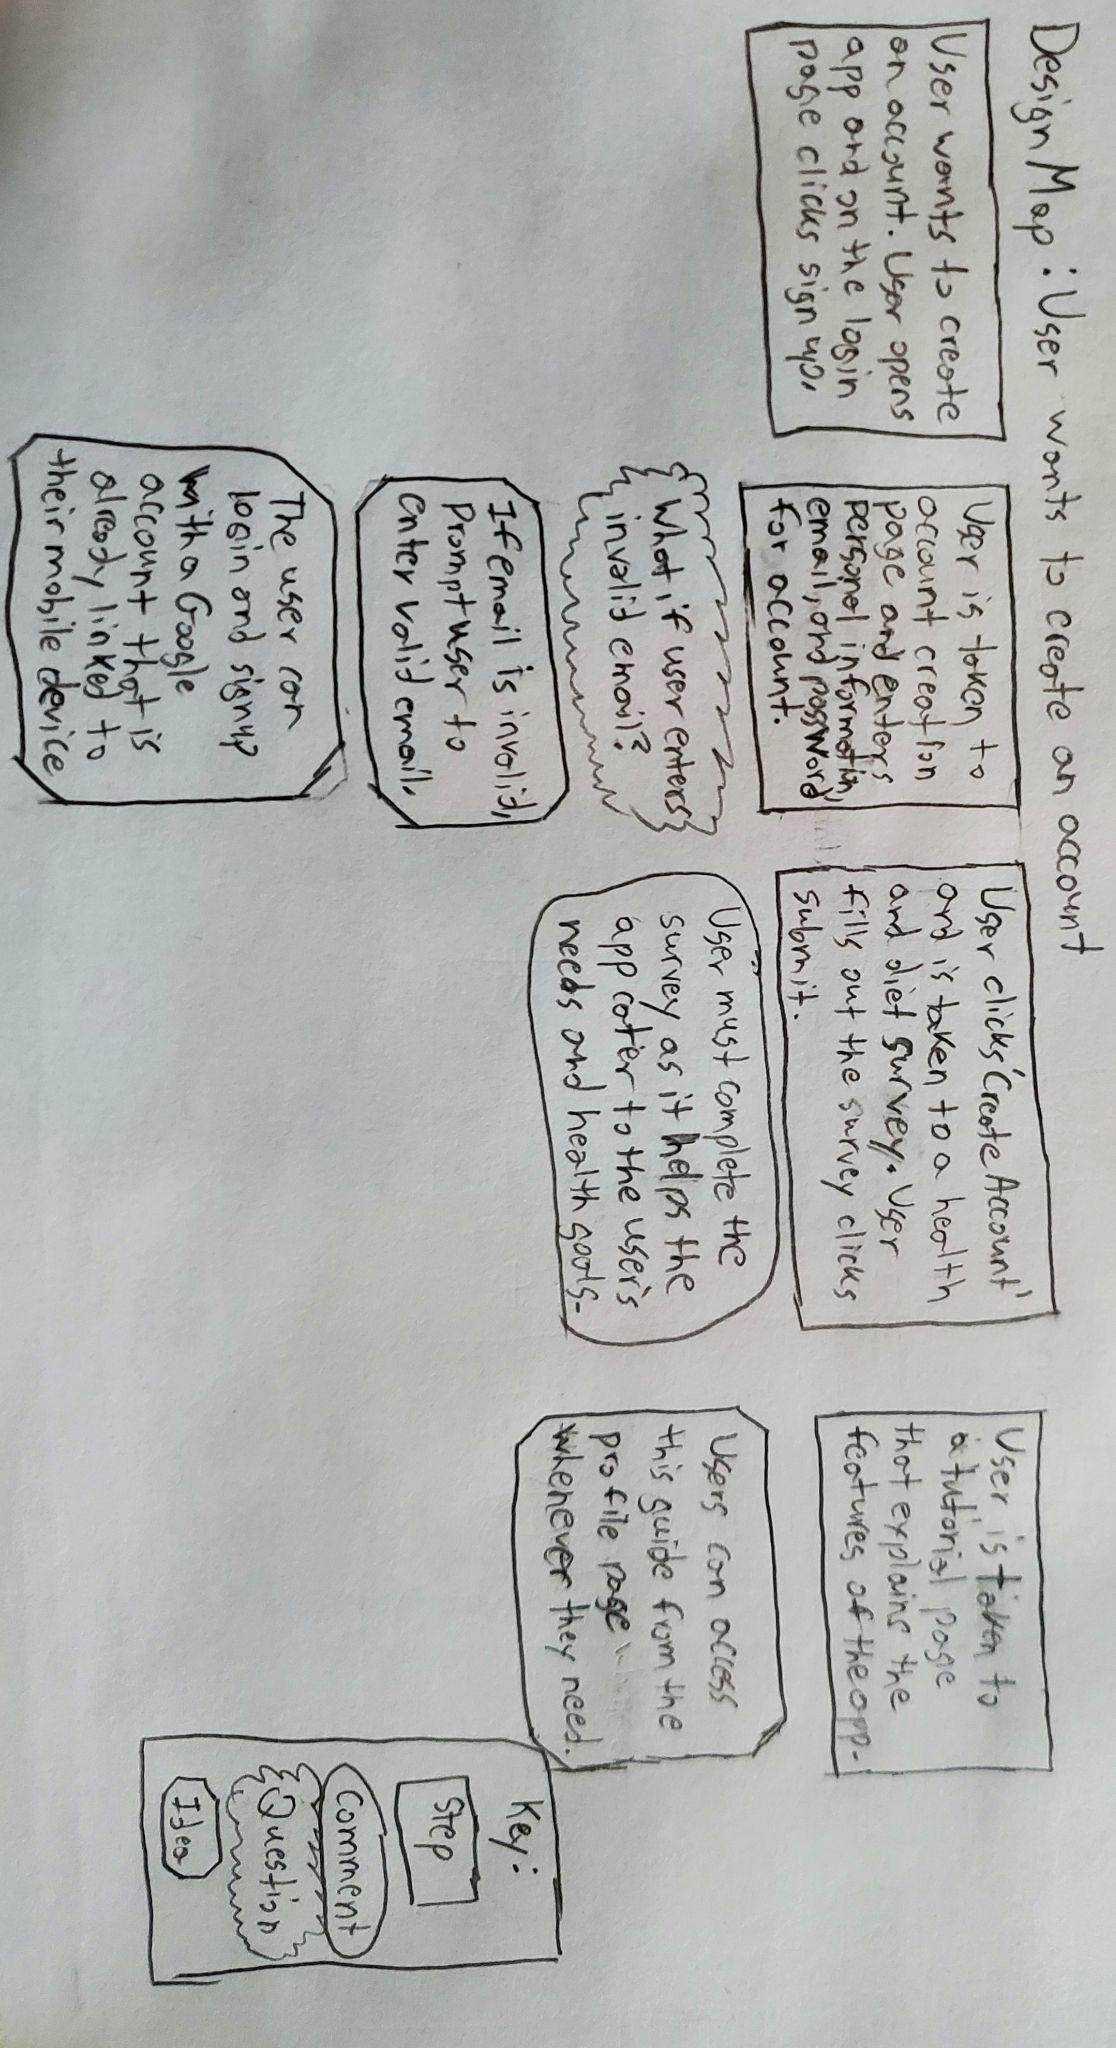 Design Map: User wants to create an account
User wants to create
an account. User opens
app and on the login
page clicks sign up.
User is taken to
account creation
page and enters
personal information,
email, and password
for account.
What if user enters
invalid email?
If email is invalid,
Prompt user to
enter valid email.
The user can
login and signup
with a Google
account that is
already linked to
their mobile device
User clicks 'Create Account'
and is taken to a health
and diet survey. User
fills out the survey clicks
submit.
User must complete the
survey as it helps the
app cater to the user's
needs and health goals.
User is taken to
a tutorial page
that explains the
features of the app.
Users can access
this guide from the
profile page
whenever they need.
Key:
Step
Comment
Question
Idea